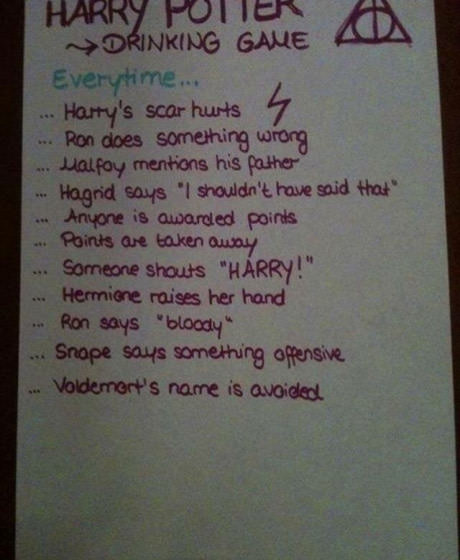 HARRY POTTER
→DRINKING GAME
Everytime...
... Harry's scar hurts
... Ron does something wrong
... Malfoy mentions his father
... Hagrid says "I shouldn't have said that"
... Anyone is awarded points
... Points are taken away
... Someone shouts "HARRY!"
... Hermione raises her hand
... Ron says "bloody"
... Snape says something offensive
... Voldemort's name is avoided